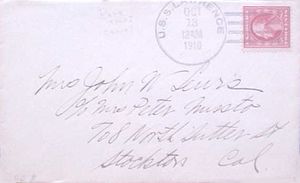 U.S.S. LAWRENCE
OCT
13
12AM
1910
Mrs John W
c/o Mrs Peter Musto
708 North Sutter St
Stockton Cal.